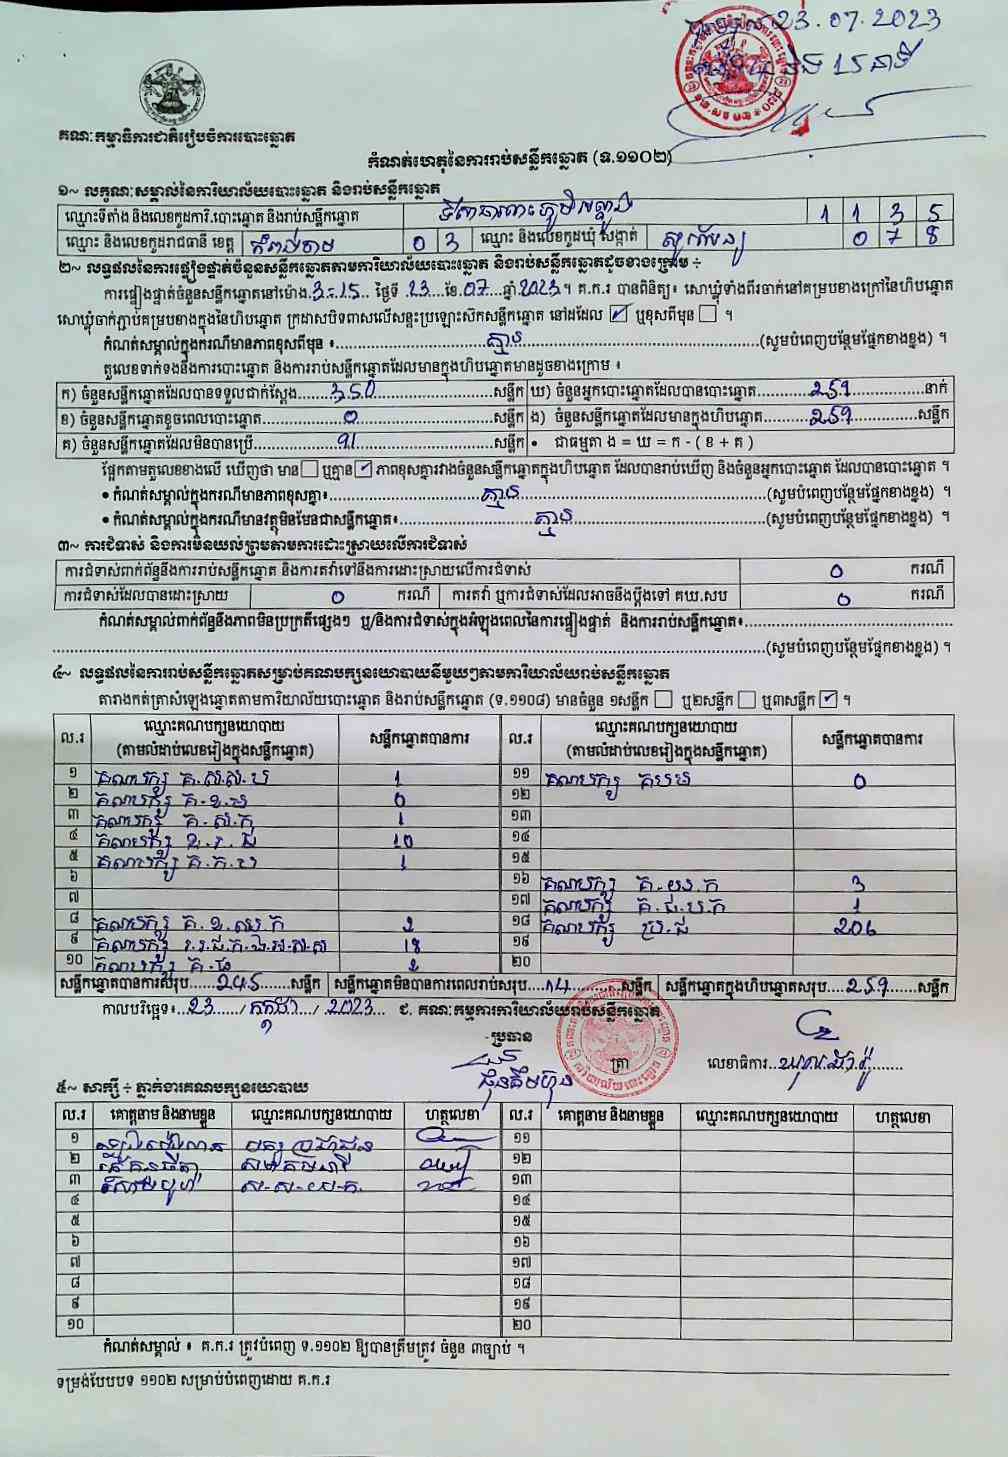 23.07.2023
15 នាទី
គណៈកម្មាធិការជាតិរៀបចំការបោះឆ្នោត
កំណត់ហេតុនៃការរាប់សន្លឹកឆ្នោត (ទ.១១០២)
១~ លក្ខណៈសម្គាល់នៃការិយាល័យបោះឆ្នោត និងរាប់សន្លឹកឆ្នោត
ឈ្មោះទីតាំង និងលេខកូដការិ.បោះឆ្នោត និងរាប់សន្លឹកឆ្នោត 1 1 3 5
ឈ្មោះ និងលេខកូដរាជធានី ខេត្ត កំពង់ចាម 0 3 ឈ្មោះ និងលេខកូដឃុំ សង្កាត់ 0 7 8
២~ លទ្ធផលនៃការផ្ទៀងផ្ទាត់ចំនួនសន្លឹកឆ្នោតតាមការិយាល័យបោះឆ្នោត និងរាប់សន្លឹកឆ្នោតដូចខាងក្រោម ÷
ការផ្ទៀងផ្ទាត់ចំនួនសន្លឹកឆ្នោតនៅម៉ោង 3-15 ថ្ងៃទី 23 ខែ 07 ឆ្នាំ 2023 ។ គ.ក.រ បានពិនិត្យ៖ សោឃ្លុំទាំងពីរចាក់នៅគម្របខាងក្រៅនៃហិបឆ្នោត
សោឃ្លុំចាក់ភ្ជាប់គម្របខាងក្នុងនៃហិបឆ្នោត ក្រដាសបិទពាសលើសន្ទះប្រឡោះសិកសន្លឹកឆ្នោត នៅដដែល ✓ ឬខុសពីមុន ។
កំណត់សម្គាល់ក្នុងករណីមានភាពខុសពីមុន ៖ គ្មាន (សូមបំពេញបន្ថែមផ្នែកខាងខ្នង) ។
តួលេខទាក់ទងនឹងការបោះឆ្នោត និងការរាប់សន្លឹកឆ្នោតដែលមានក្នុងហិបឆ្នោតមានដូចខាងក្រោម ៖
ក) ចំនួនសន្លឹកឆ្នោតដែលបានទទួលជាក់ស្តែង 350 សន្លឹក ឃ) ចំនួនអ្នកបោះឆ្នោតដែលបានបោះឆ្នោត 259 នាក់
ខ) ចំនួនសន្លឹកឆ្នោតខូចពេលបោះឆ្នោត 0 សន្លឹក ង) ចំនួនសន្លឹកឆ្នោតដែលមានក្នុងហិបឆ្នោត 259 សន្លឹក
គ) ចំនួនសន្លឹកឆ្នោតដែលមិនបានប្រើ 91 សន្លឹក • ជាធម្មតា ង = ឃ = ក - ( ខ + គ )
ផ្អែកតាមតួលេខខាងលើ ឃើញថា មាន ឬគ្មាន ✓ ភាពខុសគ្នារវាងចំនួនសន្លឹកឆ្នោតក្នុងហិបឆ្នោត ដែលបានរាប់ឃើញ និងចំនួនអ្នកបោះឆ្នោត ដែលបានបោះឆ្នោត ។
• កំណត់សម្គាល់ក្នុងករណីមានភាពខុសគ្នា៖ គ្មាន (សូមបំពេញបន្ថែមផ្នែកខាងខ្នង) ។
• កំណត់សម្គាល់ក្នុងករណីមានវត្ថុមិនមែនជាសន្លឹកឆ្នោត៖ គ្មាន (សូមបំពេញបន្ថែមផ្នែកខាងខ្នង) ។
៣~ ការជំទាស់ និងការមិនយល់ព្រមតាមការដោះស្រាយលើការជំទាស់
ការជំទាស់ពាក់ព័ន្ធនឹងការរាប់សន្លឹកឆ្នោត និងការតវ៉ាទៅនឹងការដោះស្រាយលើការជំទាស់ 0 ករណី
ការជំទាស់ដែលបានដោះស្រាយ 0 ករណី ការតវ៉ា ឬការជំទាស់ដែលអាចនឹងប្តឹងទៅ គឃ.សប 0 ករណី
កំណត់សម្គាល់ពាក់ព័ន្ធនឹងភាពមិនប្រក្រតីផ្សេងៗ ឬ/និងការជំទាស់ក្នុងអំឡុងពេលនៃការផ្ទៀងផ្ទាត់ និងការរាប់សន្លឹកឆ្នោត៖
(សូមបំពេញបន្ថែមផ្នែកខាងខ្នង) ។
៤~ លទ្ធផលនៃការរាប់សន្លឹកឆ្នោតសម្រាប់គណបក្សនយោបាយនីមួយៗតាមការិយាល័យរាប់សន្លឹកឆ្នោត
តារាងកត់ត្រាសំឡេងឆ្នោតតាមការិយាល័យបោះឆ្នោត និងរាប់សន្លឹកឆ្នោត (ទ.១១០៨) មានចំនួន ១សន្លឹក ឬ២សន្លឹក ឬ៣សន្លឹក ✓ ។
ល.រ ឈ្មោះគណបក្សនយោបាយ (តាមលំដាប់លេខរៀងក្នុងសន្លឹកឆ្នោត) សន្លឹកឆ្នោតបានការ ល.រ ឈ្មោះគណបក្សនយោបាយ (តាមលំដាប់លេខរៀងក្នុងសន្លឹកឆ្នោត) សន្លឹកឆ្នោតបានការ
១ គណបក្ស គ.ស.ស.ប 1 ១១ គណបក្ស 0
២ គណបក្ស 0 ១២
៣ គណបក្ស គ.ស.ក 1 ១៣
៤ គណបក្ស ខ.រ.ជ 10 ១៤
៥ គណបក្ស គ.ក.ប 1 ១៥
៦ ១៦ គណបក្ស 3
៧ ១៧ គណបក្ស គ.ជ.ប.ក 1
៨ គណបក្ស 2 ១៨ គណបក្ស ប្រ.ជ 206
៩ គណបក្ស 18 ១៩
១០ គណបក្ស 2 ២០
សន្លឹកឆ្នោតបានការសរុប 245 សន្លឹក សន្លឹកឆ្នោតមិនបានការពេលរាប់សរុប 14 សន្លឹក សន្លឹកឆ្នោតក្នុងហិបឆ្នោតសរុប 259 សន្លឹក
កាលបរិច្ឆេទ៖ 23 / កក្កដា / 2023 ជ. គណៈកម្មការការិយាល័យរាប់សន្លឹកឆ្នោត
-ប្រធាន
ត្រា លេខាធិការ
៥~ សាក្សី ÷ ភ្នាក់ងារគណបក្សនយោបាយ
ល.រ គោត្តនាម និងនាមខ្លួន ឈ្មោះគណបក្សនយោបាយ ហត្ថលេខា ល.រ គោត្តនាម និងនាមខ្លួន ឈ្មោះគណបក្សនយោបាយ ហត្ថលេខា
១ ១១
២ ១២
៣ ១៣
៤ ១៤
៥ ១៥
៦ ១៦
៧ ១៧
៨ ១៨
៩ ១៩
១០ ២០
កំណត់សម្គាល់ ៖ គ.ក.រ ត្រូវបំពេញ ទ.១១០២ ឱ្យបានត្រឹមត្រូវ ចំនួន ៣ច្បាប់ ។
ទម្រង់បែបបទ ១១០២ សម្រាប់បំពេញដោយ គ.ក.រ